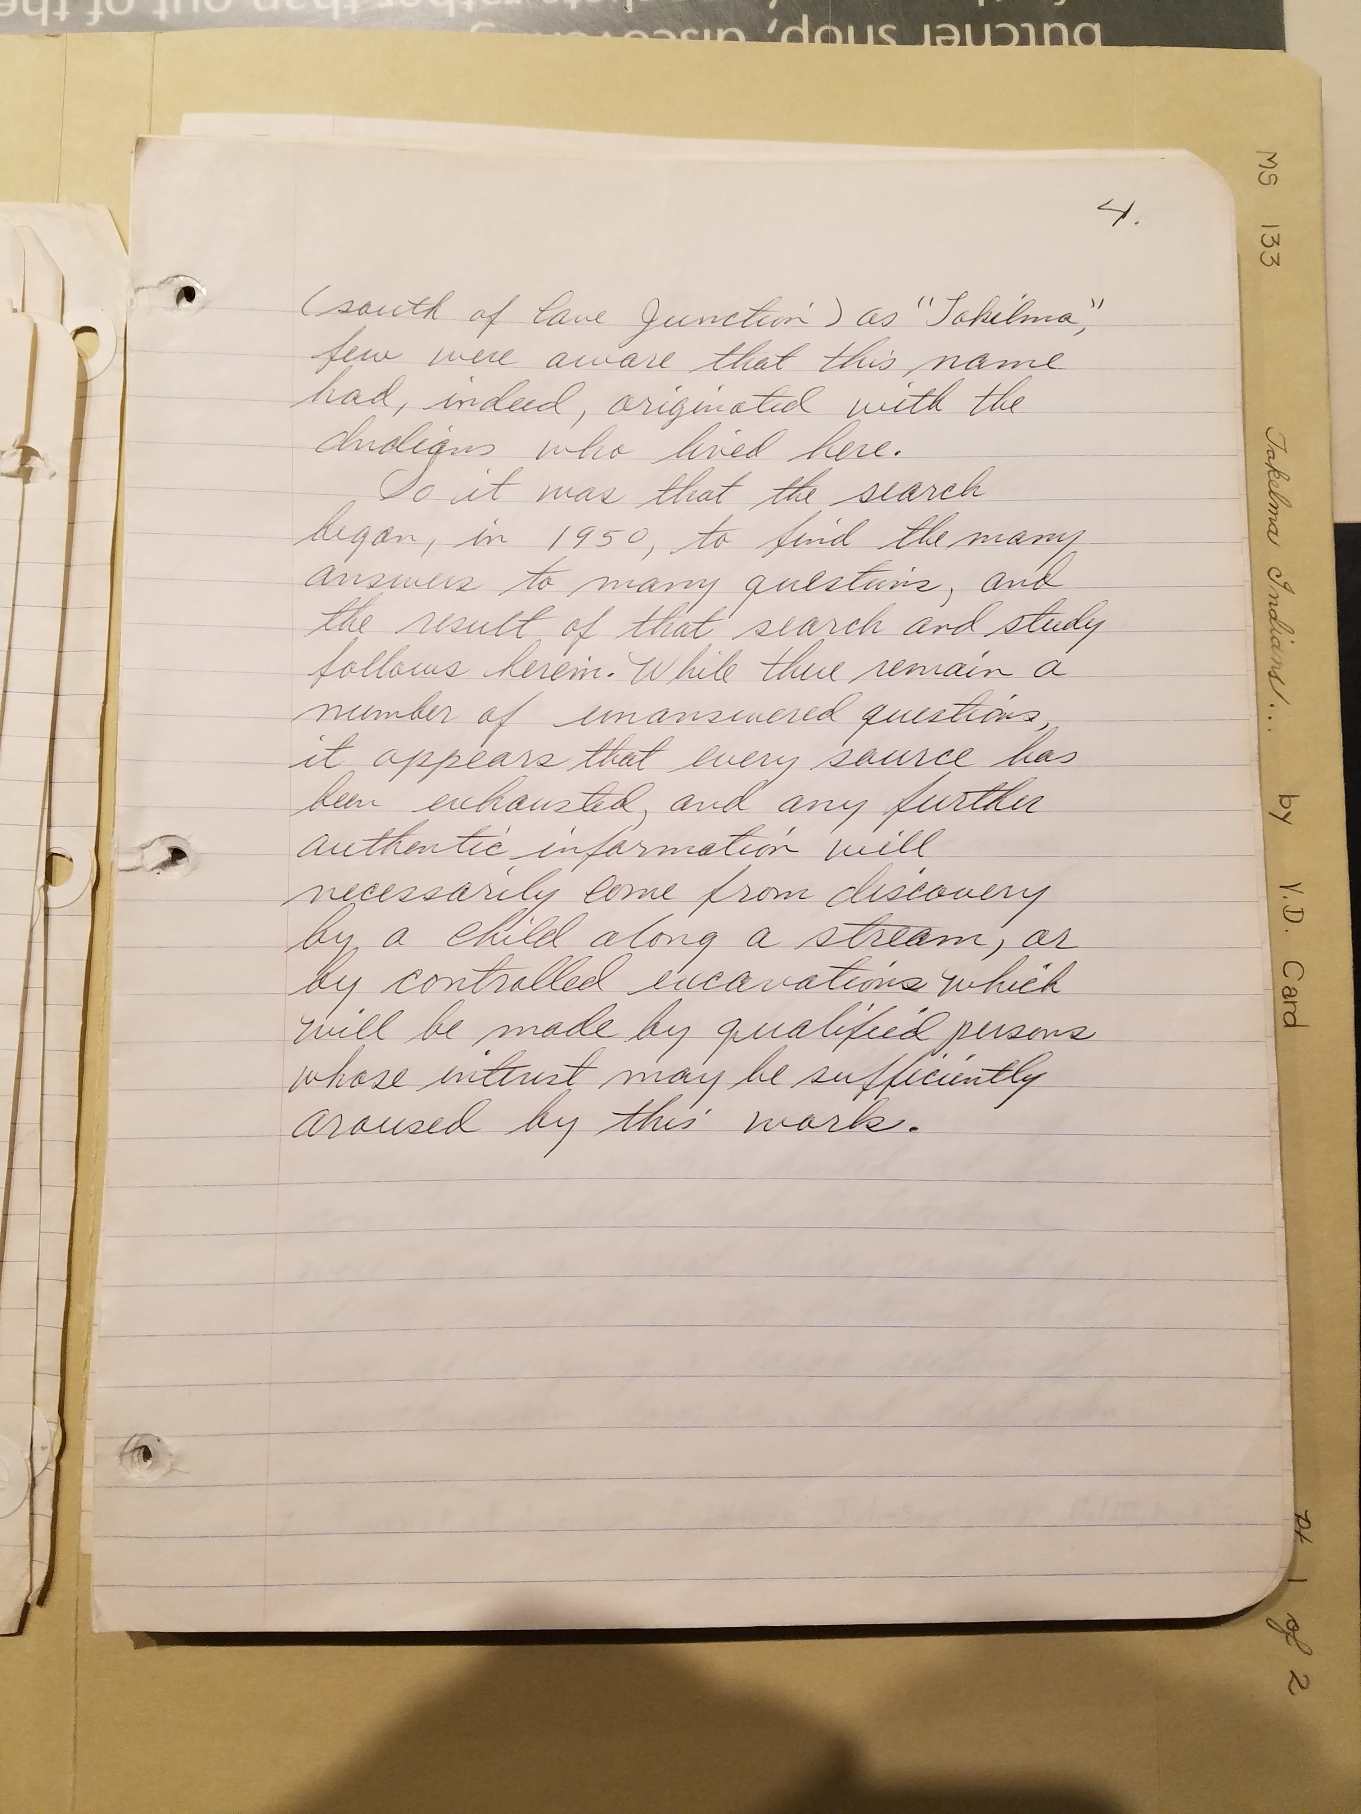 butcher shop, discovering
rather than out of the
4.
(south of Cave Junction) as "Takilma,"
few were aware that this name
had, indeed, originated with the
Indians who lived here.
So it was that the search
began, in 1950, to find the many
answers to many questions, and
the result of that search and study
follows herein. While there remain a
number of unanswered questions,
it appears that every source has
been exhausted, and any further
authentic information will
necessarily come from discovery
by a child along a stream, or
by controlled excavations which
will be made by qualified persons
whose interest may be sufficiently
aroused by this work.
MS 133 Takelma Indians... by V.D. Card pt 1 of 2